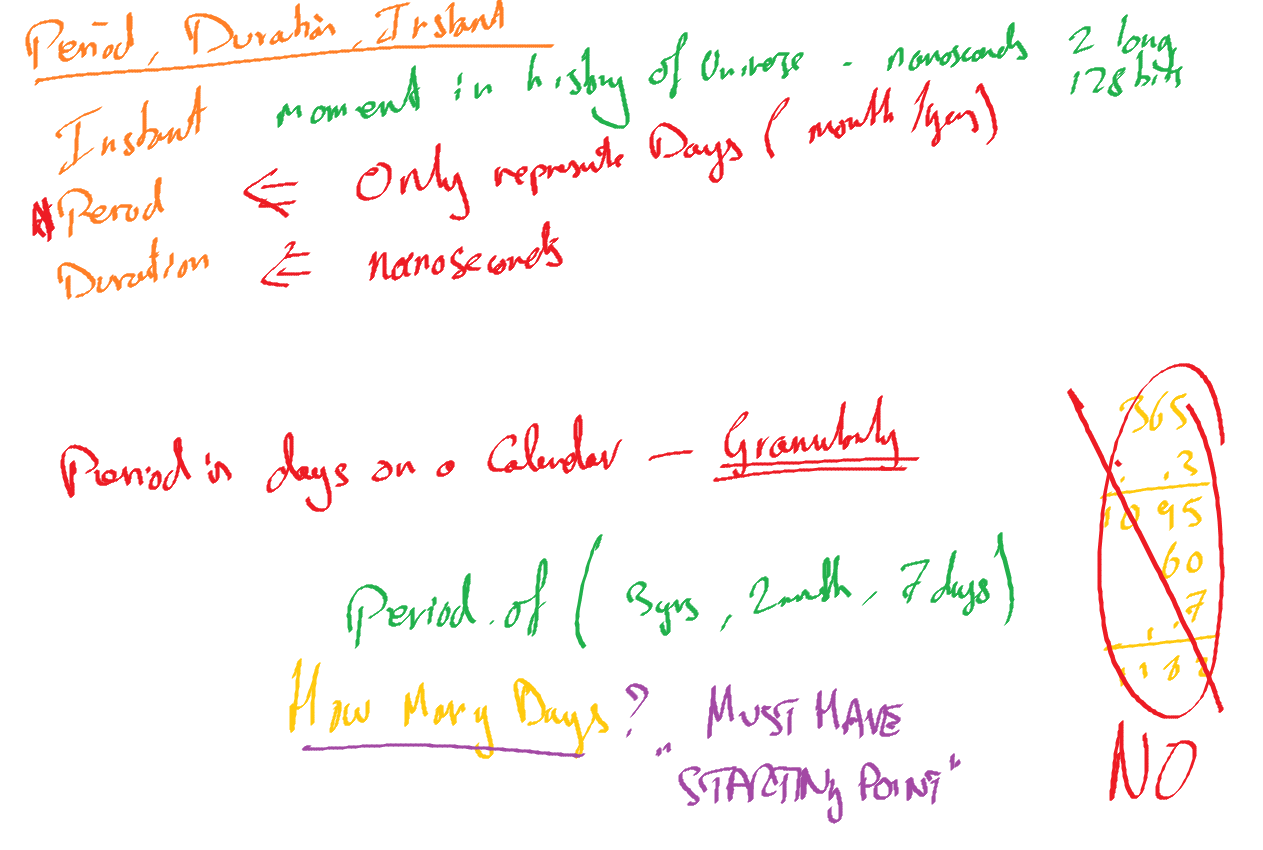 Period, Duration, Instant
Instant moment in history of Universe - nanoseconds 2 long
128 bits
Period <= Only represents Days (month / year)
Duration <= nanoseconds
365
3
Period is days on a Calendar — Granularity
1095
60
Period.of (3yrs, 2 month, 7 days)
7
How Many Days? MUST HAVE
"STARTING POINT"
NO